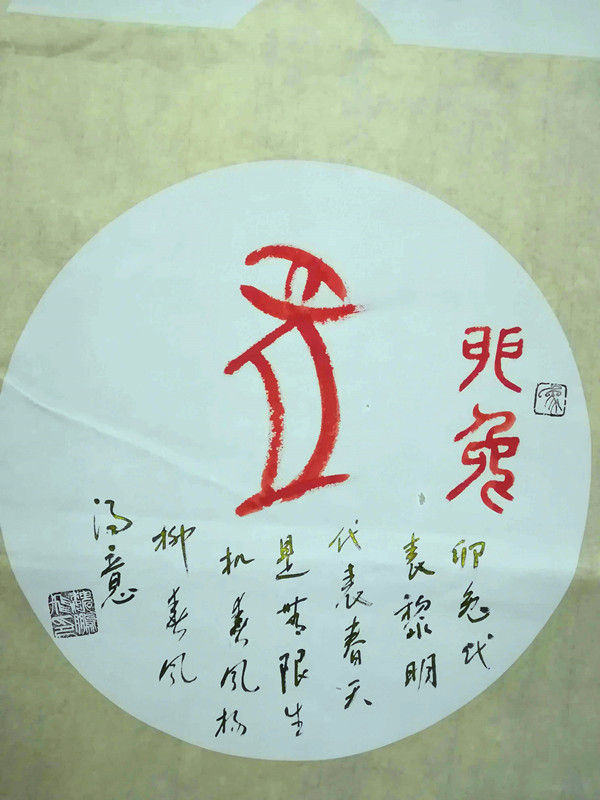 卯兔
卯兔代
表黎明
代表春天
是无限生
机春风杨
柳春风
得意